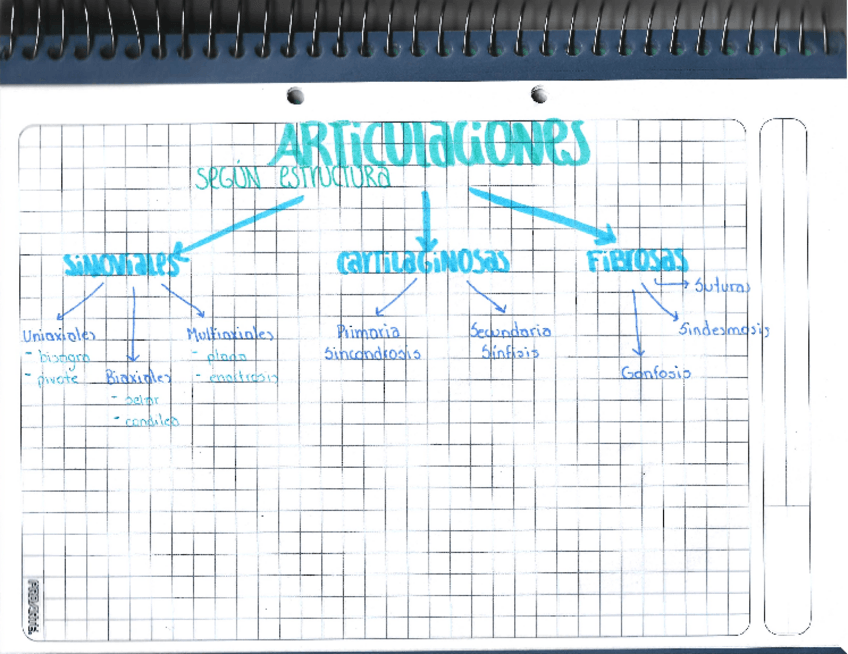 ARTICULACIONES
SEGÚN ESTRUCTURA
SINOVIALES
CARTILAGINOSAS
FIBROSAS
Suturas
Sindesmosis
Gonfosis
Uniaxiales
- bisagra
- pivote
Biaxiales
- selar
- condilea
Multiaxiales
- plana
- enartrosis
Primaria
Sincondrosis
Secundaria
Sínfisis